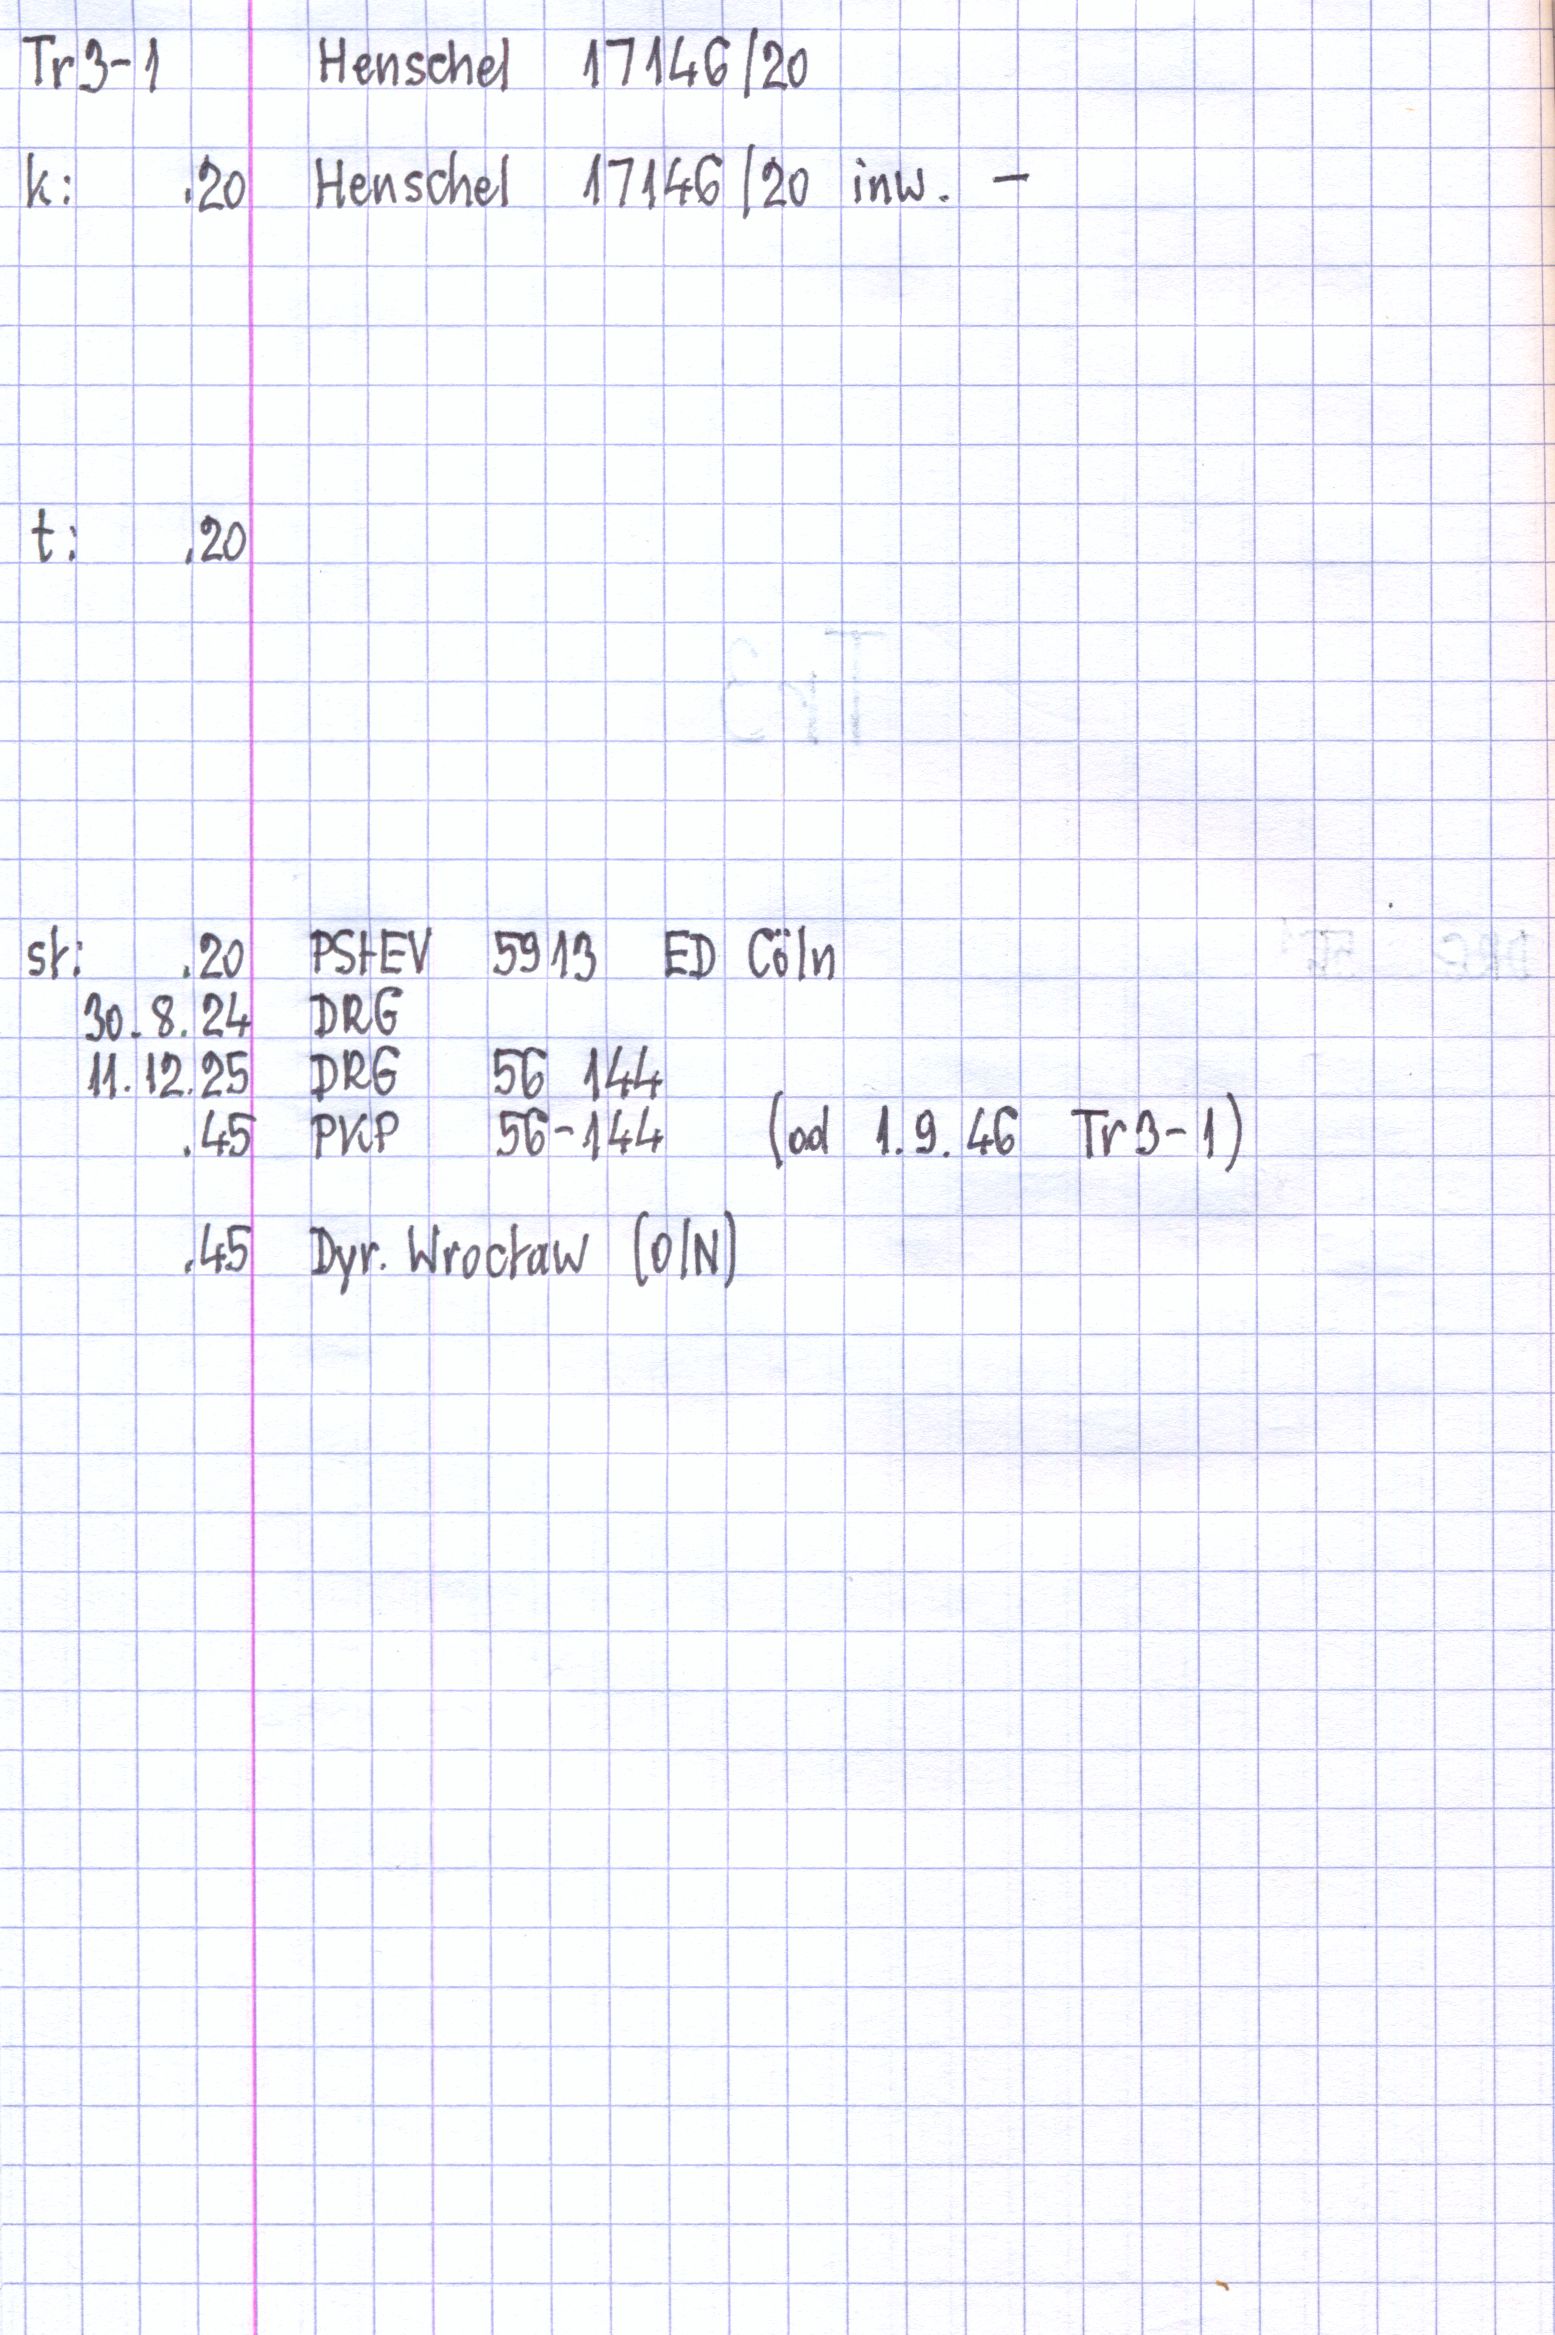 Tr3-1 Henschel 17146/20
k: .20 Henschel 17146/20 inw. -
t: .20
Tr3
st: .20 PStEV 5913 ED Cöln
30.8.24 DRG
11.12.25 DRG 56 144
.45 PKP 56-144 (od 1.9.46 Tr3-1)
.45 Dyr. Wrocław (O/N)